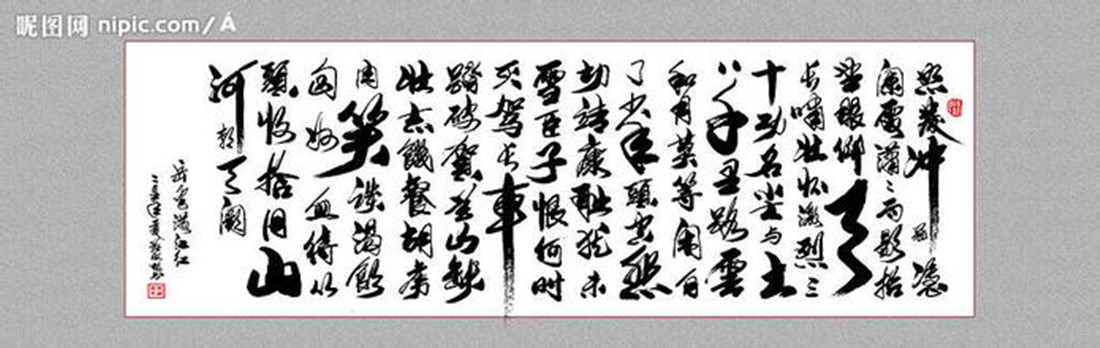 昵图网 nipic.com/Á
怒髮冲冠憑
闌處瀟々雨歇抬
望眼仰天
長嘯壯怀激烈三
十功名尘与土
八千里路雲
和月莫等閑白
了少年頭空悲
切靖康耻犹未
雪臣子恨何时
灭驾长車
踏破賀兰山缺
壮志饑餐胡虏
肉笑谈渴飲
匈奴血待从
頭收拾旧山
河朝天阙
岳飛滿江红